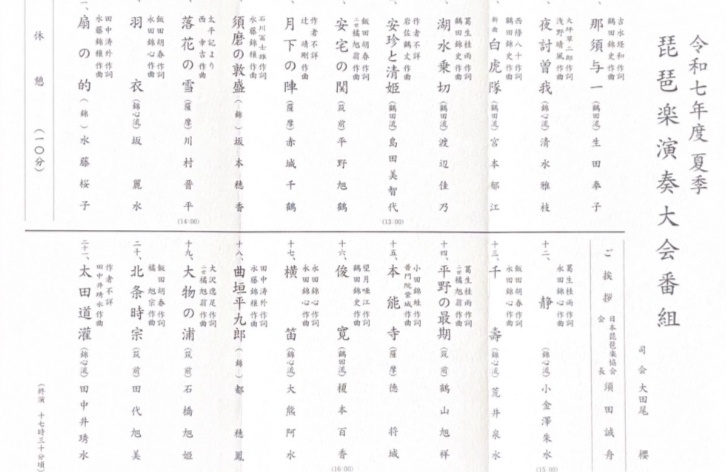 令和七年度 夏季
琵琶楽演奏大会番組
司会 大田尾 櫻
吉永経和作詞
鶴田錦史作曲
那須与一(鶴田流)生田奉子
大坪草二郎作詞
浅野晴風作曲
夜討曽我(錦心流)清水雅枝
西條八十作詞
鶴田錦史作曲
新曲 白虎隊(鶴田流)宮本郁江
葛生桂雨作詞
鶴田錦史作曲
湖水乗切(鶴田流)渡辺佳乃
作者不詳
岩佐鶴丈作曲
安珍と清姫(鶴田流)島田美智代
(13:00)
飯田胡春作詞
二世 橘旭翁作曲
安宅の関(筑前)平野旭鶴
作者不詳
辻靖剛作曲
月下の陣(薩摩)赤城千鶴
石川冨士雄作詞
水藤錦穣作曲
須磨の敦盛(錦)坂本穂香
太平記より
西幸吉作曲
落花の雪(薩摩)川村晋平
(14:00)
飯田胡春作詞
永田錦心作曲
羽衣(錦心流)坂麗水
田中濤外作詞
水藤錦穣作曲
一、扇の的(錦)水藤桜子
休憩(一〇分)
ご挨拶
日本琵琶楽協会
会長 須田誠舟
葛生桂雨作詞
永田錦心作曲
十二、静(錦心流)小金澤朱水
(15:00)
飯田胡春作詞
永田錦心作曲
十三、千壽(錦心流)荒井泉水
葛生桂雨作詞
二世 橘旭翁作曲
十四、平野の最期(筑前)鶴山旭祥
小田錦蛙作詞
普門院蒙城作曲
十五、本能寺(薩摩)德将城
望月唖江作詞
鶴田錦史作曲
十六、俊寛(鶴田流)榎本百香
(16:00)
永田錦心作詞
永田錦心作曲
十七、横笛(錦心流)大熊阿水
田中濤外作詞
水藤錦穣作曲
十八、曲垣平九郎(錦)都穂鳳
大沢徳足作詞
二世 橘旭翁作曲
十九、大物の浦(筑前)石橋旭姫
飯田胡春作詞
橘旭宗作曲
二十、北条時宗(筑前)田代旭美
作者不詳
田中井琇水作曲
二十一、太田道灌(錦心流)田中井琇水
(終演 十七時三十分頃)